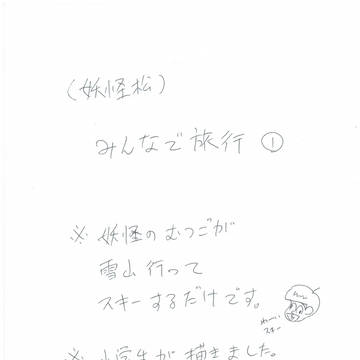 (妖怪松)
みんなで旅行 ①
※ 妖怪のむつごが
雪山行って
スキーするだけです。
わーい
スキー
※ 小学生が描きました。